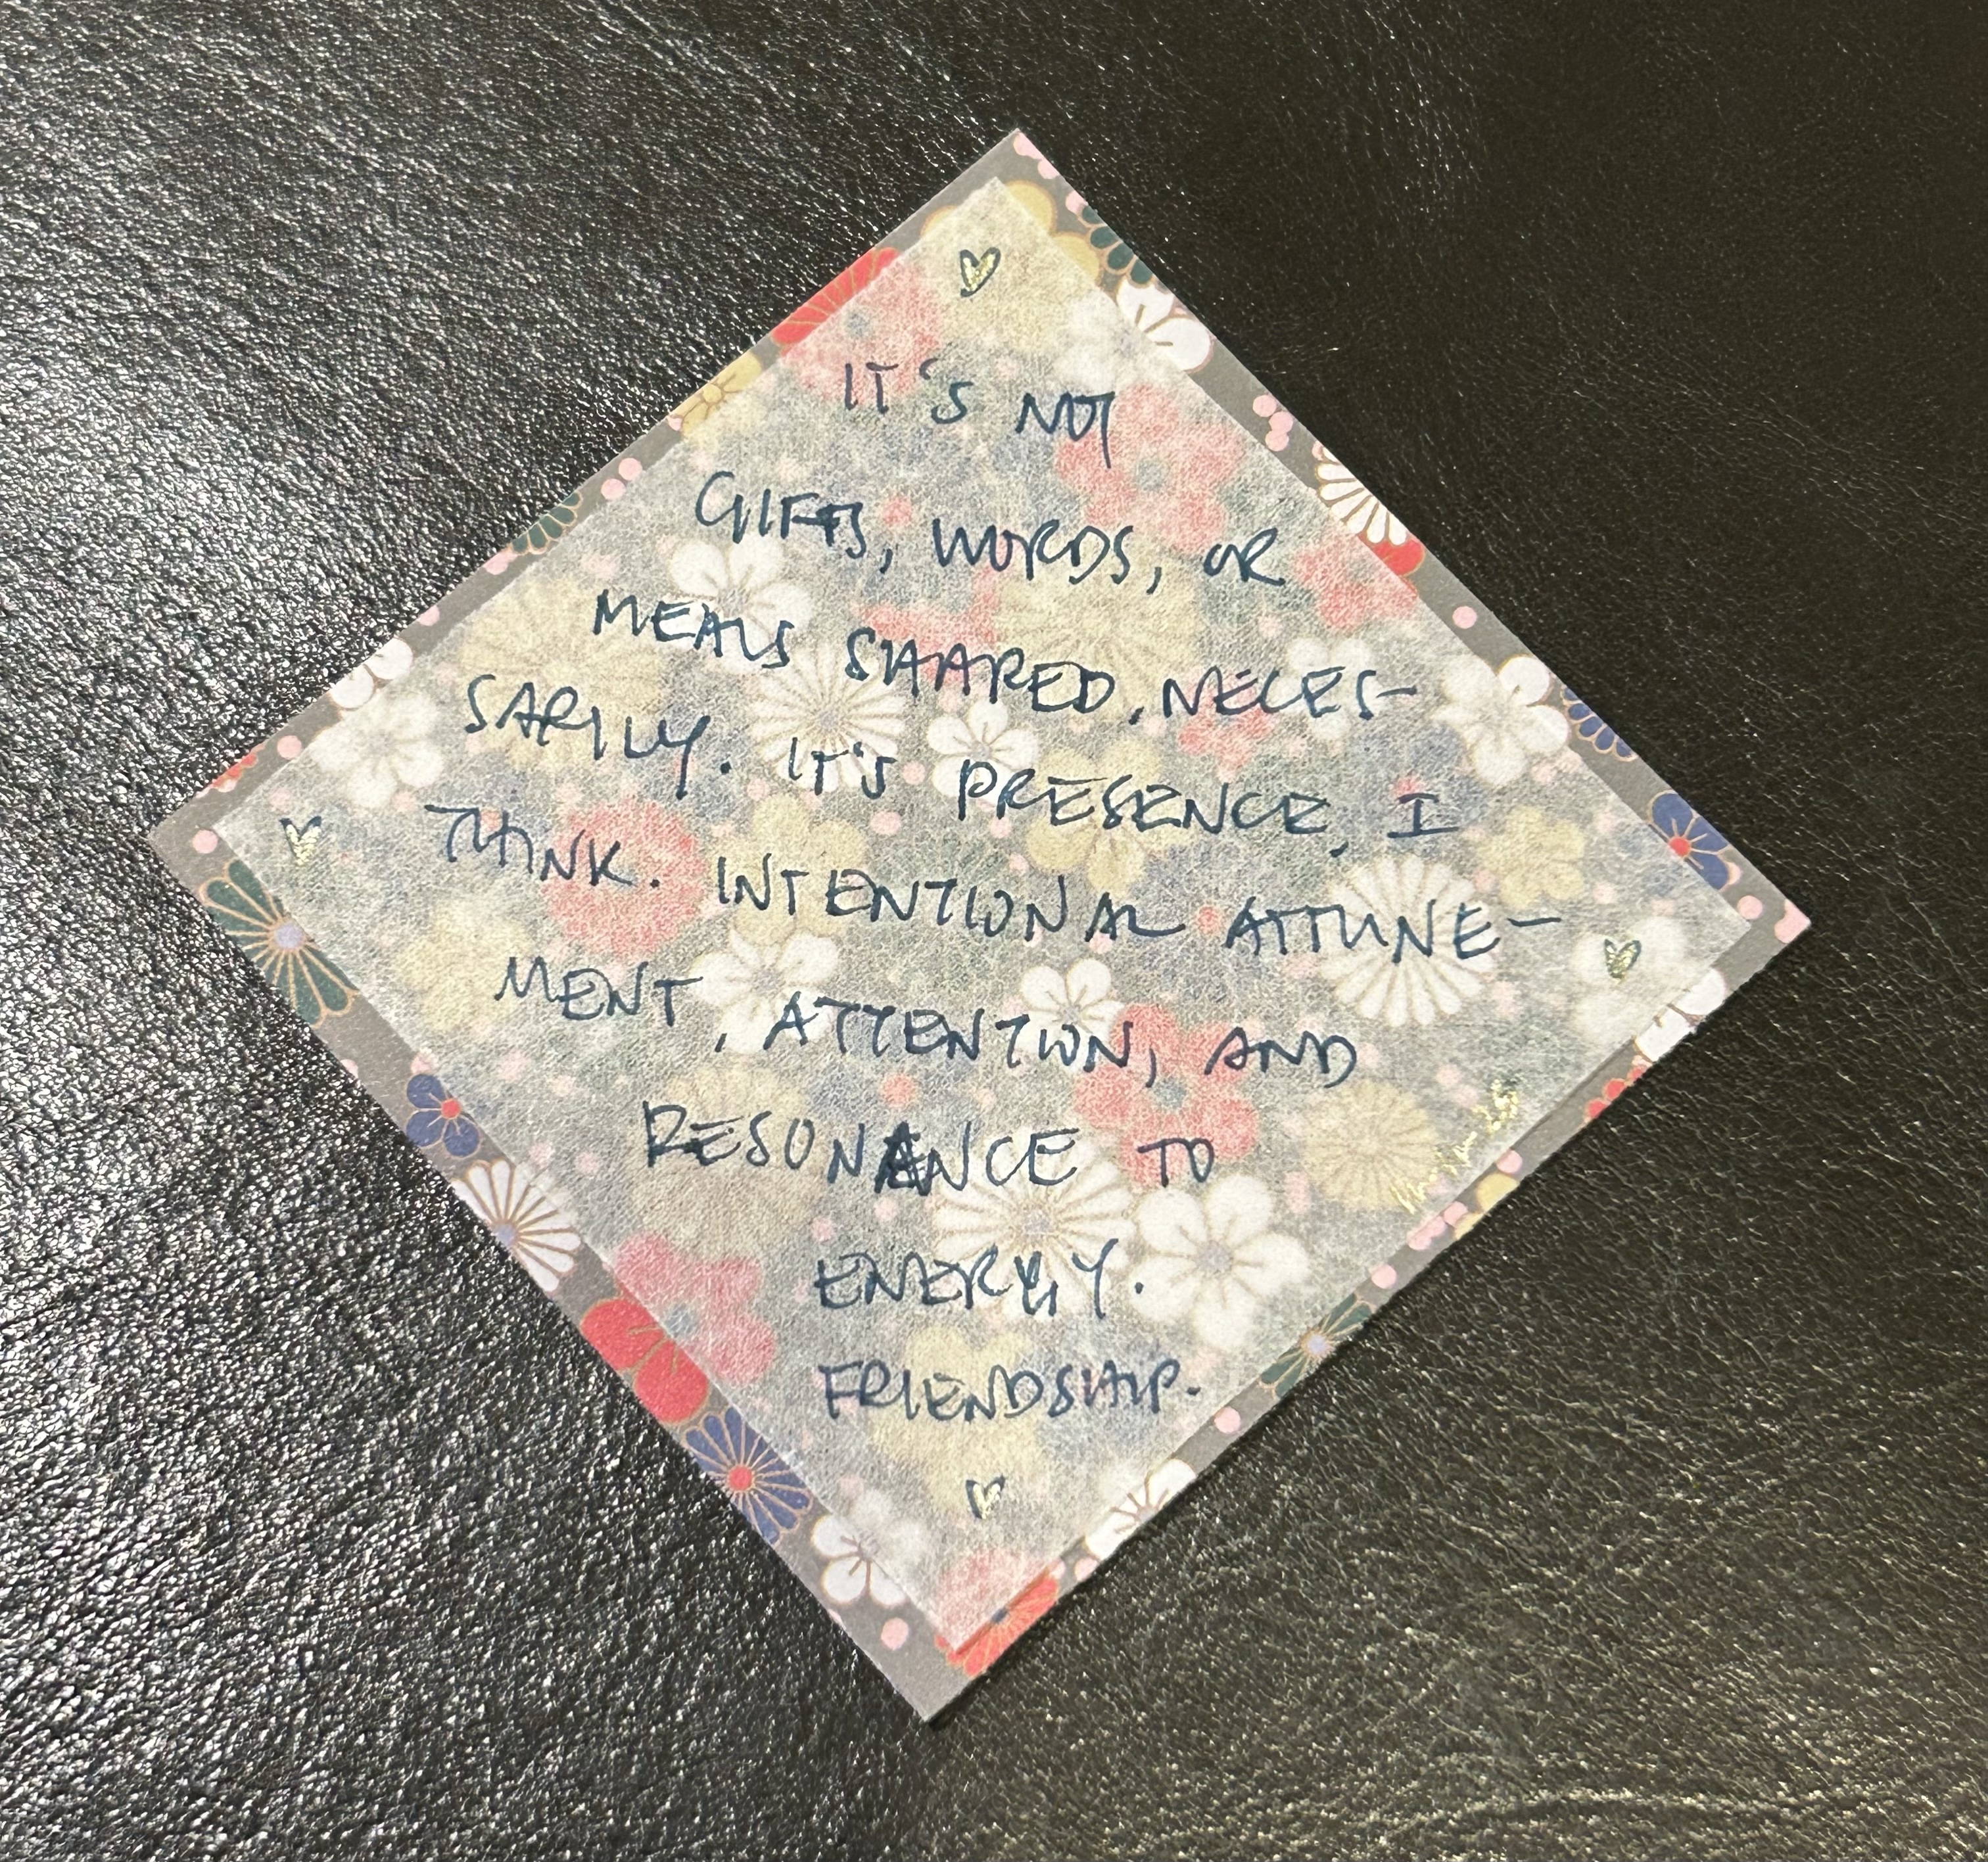 IT'S NOT
GIFTS, WORDS, OR
MEALS SHARED, NECES-
SARILY. IT'S PRESENCE, I
THINK. INTENTIONAL ATTUNE-
MENT, ATTENTION, AND
RESONANCE TO
ENERGY.
FRIENDSHIP.